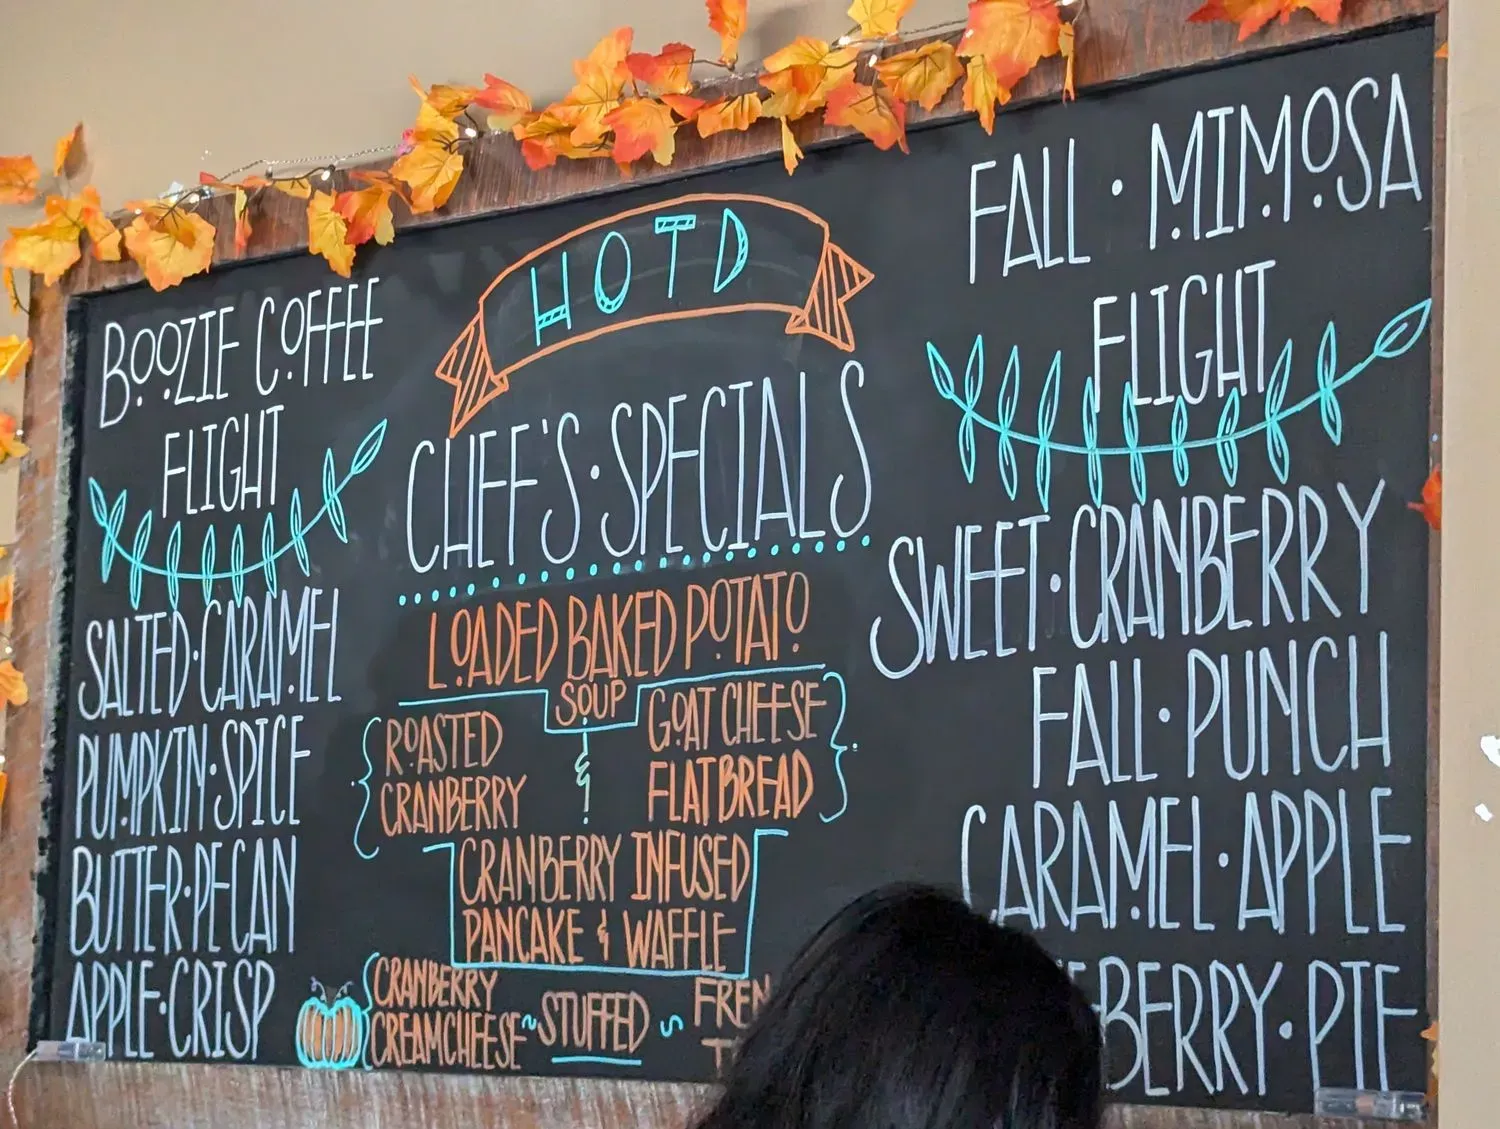 BOOZIE COFFEE
FLIGHT
SALTED·CARAMEL
PUMPKIN·SPICE
BUTTER·PECAN
APPLE·CRISP
HOTD
CHEF'S·SPECIALS
LOADED BAKED POTATO
SOUP
ROASTED
CRANBERRY
&
GOAT CHEESE
FLATBREAD
CRANBERRY INFUSED
PANCAKE & WAFFLE
CRANBERRY
CREAMCHEESE~STUFFED~
FALL·MIMOSA
FLIGHT
SWEET·CRANBERRY
FALL·PUNCH
CARAMEL·APPLE
BERRY·PIE